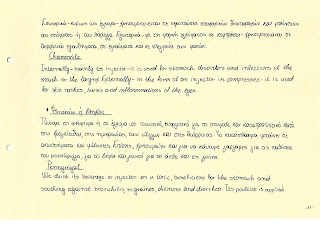 Εσωτερικά-κυρίως ως έγχυμα-χρησιμοποιείται σε περιπτώσεις στομαχικών διαταραχών και μολύνσεων
του στόματος ή του λάρυγγα. Εξωτερικά-με τη μορφή εγχύματος σε κομπρέσες-χρησιμοποιείται σε
δερματικά προβλήματα, σε εγκαύματα και σε φλεγμονές των ματιών.
Chamomile
Internally-mainly as injector-it is used for stomach disorders and infections of the
mouth or the larynx. Externally-in the form of an injector in compresses-it is used
for skin rashes, burns and inflammations of the eyes.
• Φλισκούνι ή
Πίνουμε το απόσταγμά ή το έγχυμα ως τονωτικό, ευεργετικό για το στομάχι και καταπραϋντικό κατά
της βρογχίτιδας, της ημικρανίας, των ιλίγγων και της διάρροιας. Το κατάπλασμα
και Επίσης, χρησιμεύει και για να κάνουμε γαργάρες για τις παθήσεις
του για τα και για τα ούλα και τη μύτη.
Pennyroyal
We drink its beverage or injector as a tonic, beneficiary for the stomach and
soothing against bronchitis, migraines, dizziness and diarrhea. Its poultice is applied